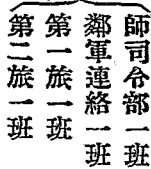 師司令部一班
鄰軍連絡一班
第一旅一班
第二旅一班